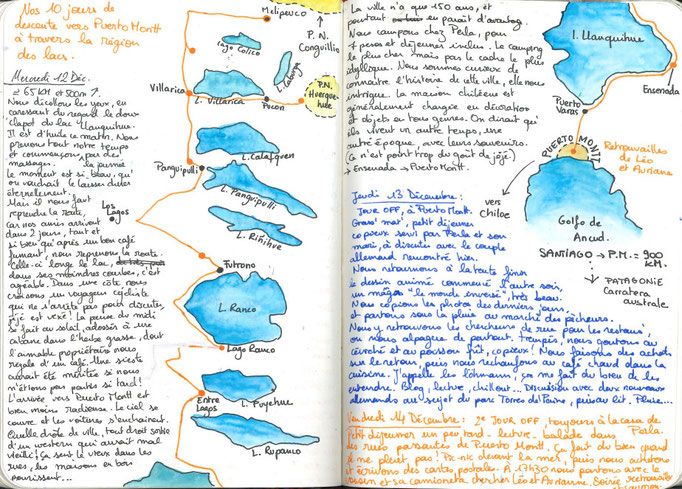 Nos 10 jours de
descente vers Puerto Montt
à travers la région
des lacs.
Mercredi 12 Déc.
≃ 65 km et 500m ↑.
Nous décollons les yeux, en
caressant du regard le doux
clapot du lac Llanquihue.
Il est d'huile ce matin. Nous
prenons tout notre temps
et commençons, par des
massages, la journée
le moment est si beau, qu'
on voudrait le laisser durer
éternellement.
Mais il nous faut
reprendre la route,
Car nos amis arrivent
dans 2 jours, tant et
si bien qu'après un bon café
fumant, nous reprenons la route.
Celle-ci longe le lac,
dans ses moindres courbes, c'est
agréable. Dans une côte nous
croisons un voyageur cycliste
qui ne s'arrête pas pour discuter,
jéjé est vexé! La pause du midi
se fait au soleil, adossés à une
cabane dans l'herbe grasse, dont
l'aimable propriétaire nous
régale d'un café. Une sieste
aurait été méritée si nous
n'étions pas partis si tard!
L'arrivée vers Puerto Montt est
bien moins radieuse. Le ciel se
couvre et les voitures s'enchaînent.
Quelle drôle de ville, tout droit sortie
d'un western qui aurait mal
vieilli! Ça sent le vieux dans les
rues, les maisons en bois
pourrissent...
Melipeuco
P.N.
Conguillio
Lago Colico
L. Caburga
P.N.
Huerque-
hue
Villarica
L. Villarica
Pucon
L. Calafquen
Panguipulli
L. Panguipulli
Los
Lagos
L. Riñihue
Futrono
L. Ranco
Lago Ranco
Entre
Lagos
L. Puyehue
L. Rupanco
La ville n'a que 150 ans, et
pourtant en paraît d'avantage.
Nous campons chez Perla, pour
7 pesos et déjeuner inclus. Le camping
le plus cher mais pas le cadre le plus
idyllique. Nous sommes curieux de
connaître l'histoire de cette ville, elle nous
intrigue. La maison chilienne est
généralement chargée en décoration
et objets en tous genres. On dirait qu'
ils vivent un autre temps, une
autre époque, avec leurs souvenirs.
(Ce n'est point trop du goût de jéjé)
→ Ensenada → Puerto Montt.
L. Llanquihue
Ensenada
Puerto
Varas
PUERTO MONTT
Retrouvailles
de Léo
et Auriane
vers
chiloe
Golfo de
Ancud.
SANTIAGO → P.M. = 900
KM.
PATAGONIE
Carratera
australe
Jeudi 13 Décembre:
JOUR OFF, à Puerto Montt.
Grass' mat', petit déjeuner
copieux servi par Perla et son
mari, à discuter avec le couple
allemand rencontré hier.
Nous retournons à la tente finir
le dessin animé commencé l'autre soir,
un mangas "le monde inversé", très beau.
Nous copions les photos des derniers jours,
et partons sous la pluie au marché des pêcheurs.
Nous y retrouvons les chercheurs de rue pour les restaus,
on nous alpague de partout. Trempés, nous goutons au
ceviché et au poisson frit, copieux! Nous faisons des achats
sur le retour, puis nous réchauffons au café chaud dans la
cuisine. J'appelle les lohmann, ça me fait du bien de les
entendre. Blog, lecture, chillout... Discussion avec deux nouveaux
allemands au sujet du parc Torres del Paine, puis au lit. Pluie...
Vendredi 14 Décembre: 2e JOUR OFF, toujours à la casa de
Perla.
Petit déjeuner un peu tard. lecture. ballade dans
les rues passantes de Puerto Montt. Ça fait du bien quand
il ne pleut pas! Pic-nic devant la mer, puis nous achetons
et écrivons des cartes postales. A 17H30 nous partons avec le
et sa camioneta chercher Léo et Auriane. Soirée retrouvailles